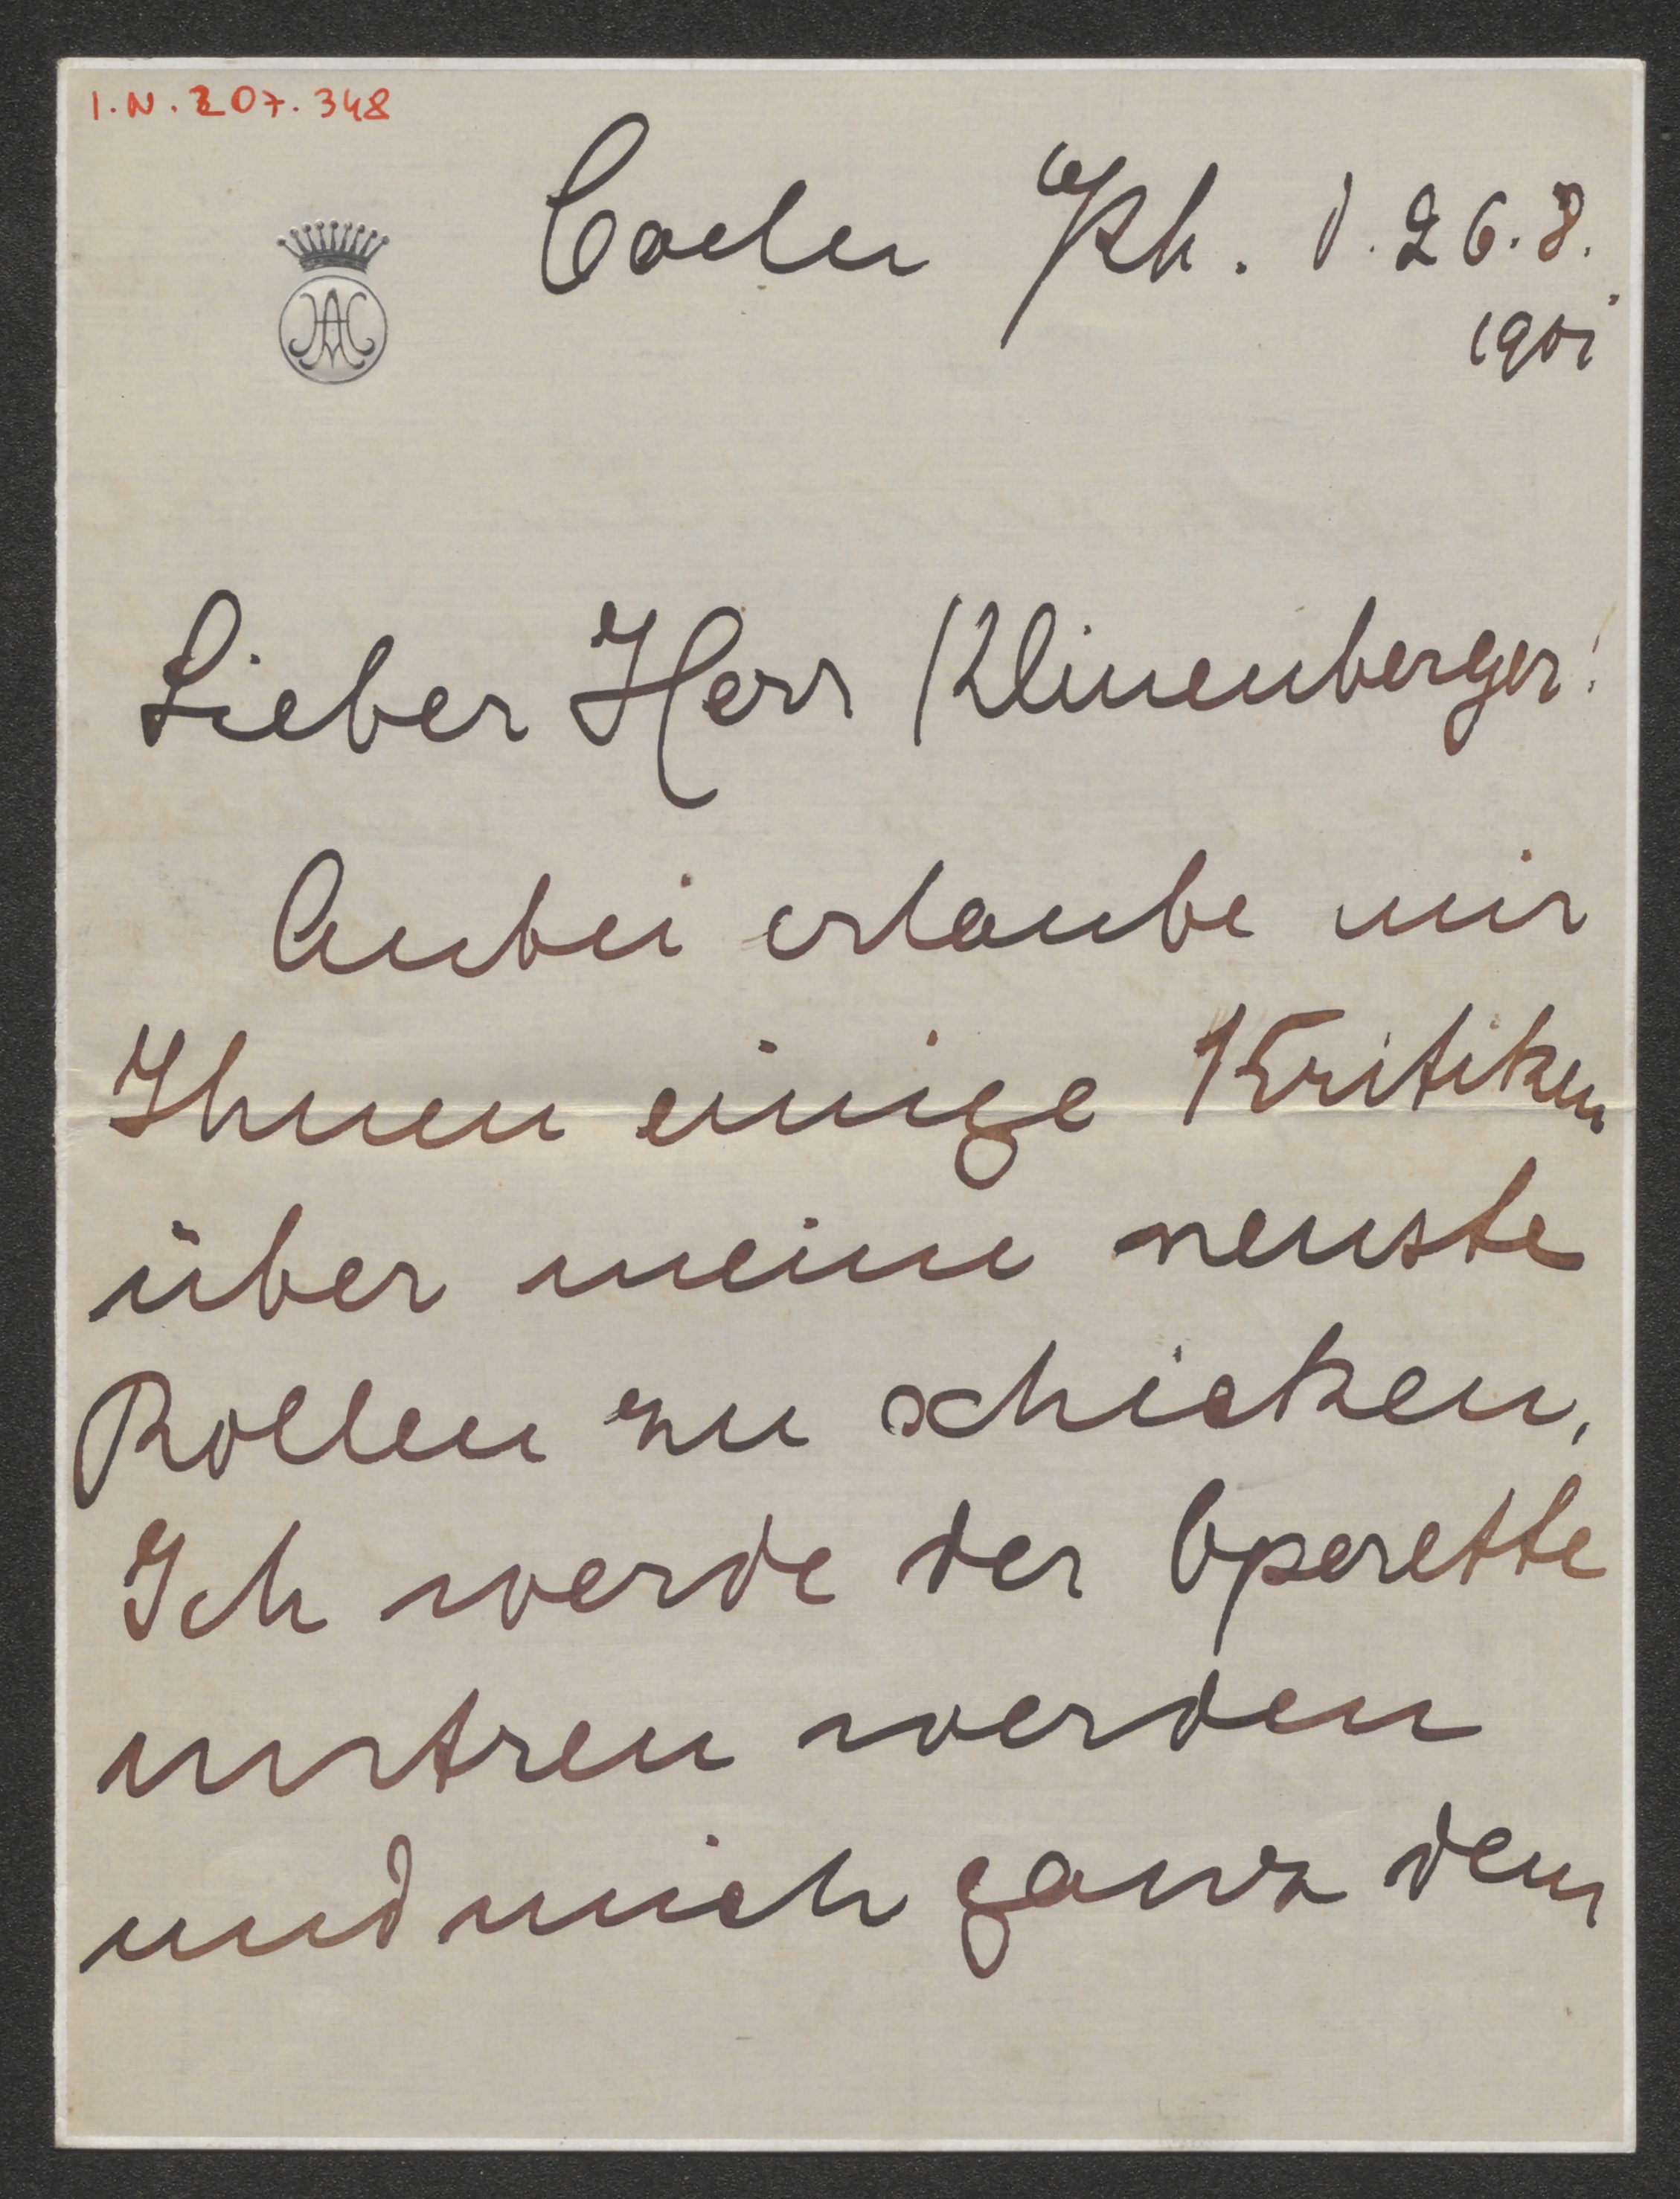 I.N. 207.348
Coeln a/Rh. d. 26.8.
1901
Lieber Herr Klinenberger!
Anbei erlaube mir
Ihnen einige Kritiken
über meine neuste
Rollen zu schicken,
Ich werde der Operette
untreu werden
und mich ganz dem